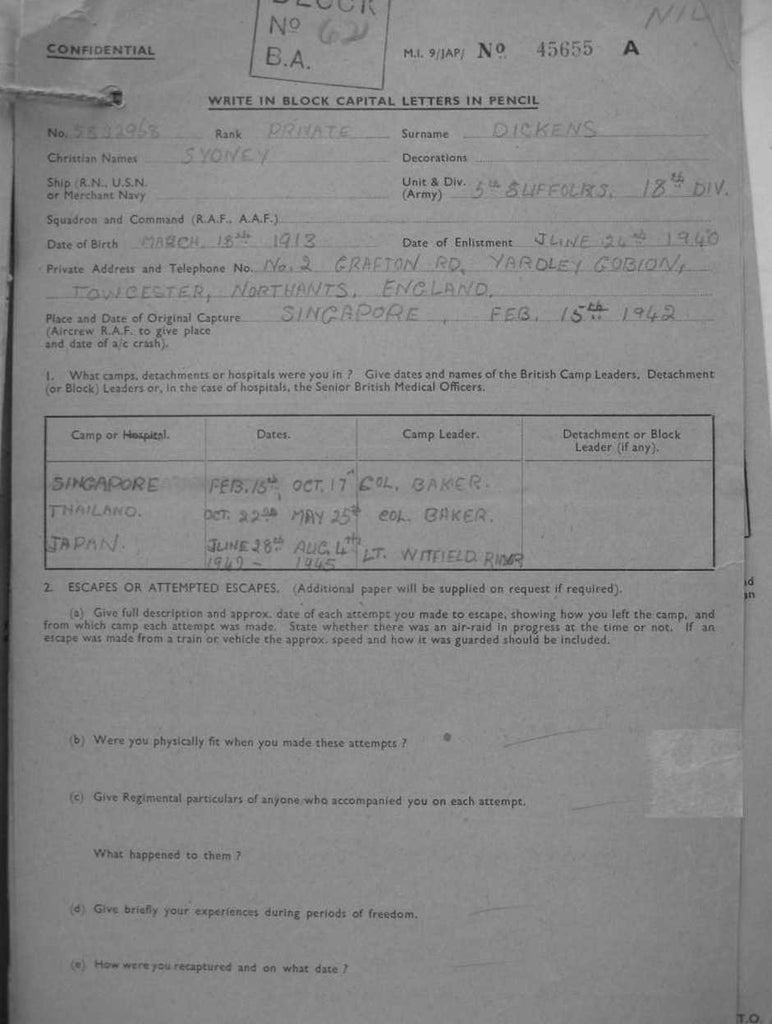 BLOCK
Nº 62
B.A.
NIL
CONFIDENTIAL
M.I. 9/JAP/ Nº 45655 A
WRITE IN BLOCK CAPITAL LETTERS IN PENCIL
No. 5832968 Rank PRIVATE Surname DICKENS
Christian Names SYDNEY Decorations
Ship (R.N., U.S.N. or Merchant Navy Unit & Div. (Army) 5th SUFFOLKS. 18th DIV.
Squadron and Command (R.A.F., A.A.F.)
Date of Birth MARCH. 18th 1913 Date of Enlistment JUNE 24th 1940
Private Address and Telephone No. No. 2 GRAFTON RD, YARDLEY GOBION,
TOWCESTER, NORTHANTS, ENGLAND.
Place and Date of Original Capture SINGAPORE, FEB. 15th 1942
(Aircrew R.A.F. to give place
and date of a/c crash).
1. What camps, detachments or hospitals were you in ? Give dates and names of the British Camp Leaders, Detachment
(or Block) Leaders or, in the case of hospitals, the Senior British Medical Officers.
Camp or Hospital. Dates. Camp Leader. Detachment or Block
Leader (if any).
SINGAPORE FEB. 15th, OCT. 17th COL. BAKER.
THAILAND. OCT. 22nd MAY 25th COL. BAKER.
JAPAN. JUNE 28th AUG. 4th LT. WITFIELD
1942 - 1945
2. ESCAPES OR ATTEMPTED ESCAPES. (Additional paper will be supplied on request if required).
(a) Give full description and approx. date of each attempt you made to escape, showing how you left the camp, and
from which camp each attempt was made. State whether there was an air-raid in progress at the time or not. If an
escape was made from a train or vehicle the approx. speed and how it was guarded should be included.
(b) Were you physically fit when you made these attempts ?
(c) Give Regimental particulars of anyone who accompanied you on each attempt.
What happened to them ?
(d) Give briefly your experiences during periods of freedom.
(e) How were you recaptured and on what date ?
T.O.